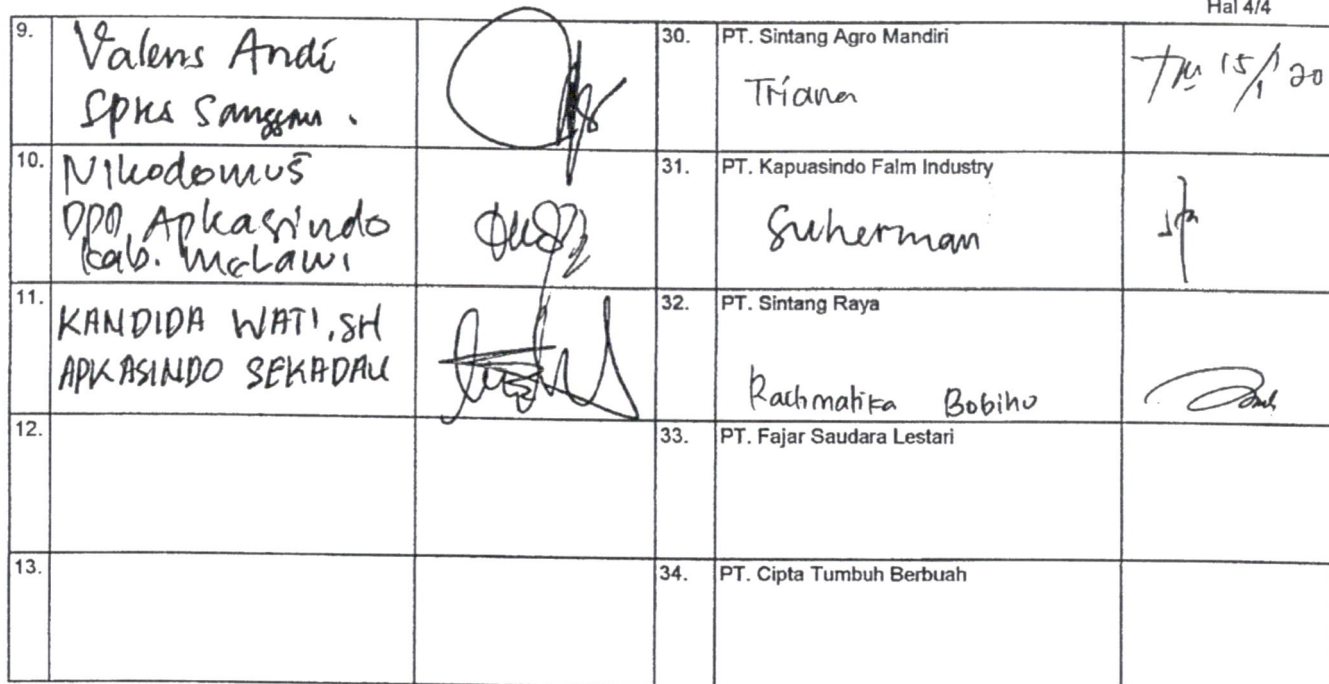 Hal 4/4
9.
Valens Andi
SPKS Sanggau.
30.
PT. Sintang Agro Mandiri
Triana
15/1 20
10.
Nikodomus
DPD Apkasindo
kab. Melawi
31.
PT. Kapuasindo Falm Industry
Suherman
11.
KANDIDA WATI, SH
APKASINDO SEKADAU
32.
PT. Sintang Raya
Rachmatika Bobihu
12.
33.
PT. Fajar Saudara Lestari
13.
34.
PT. Cipta Tumbuh Berbuah